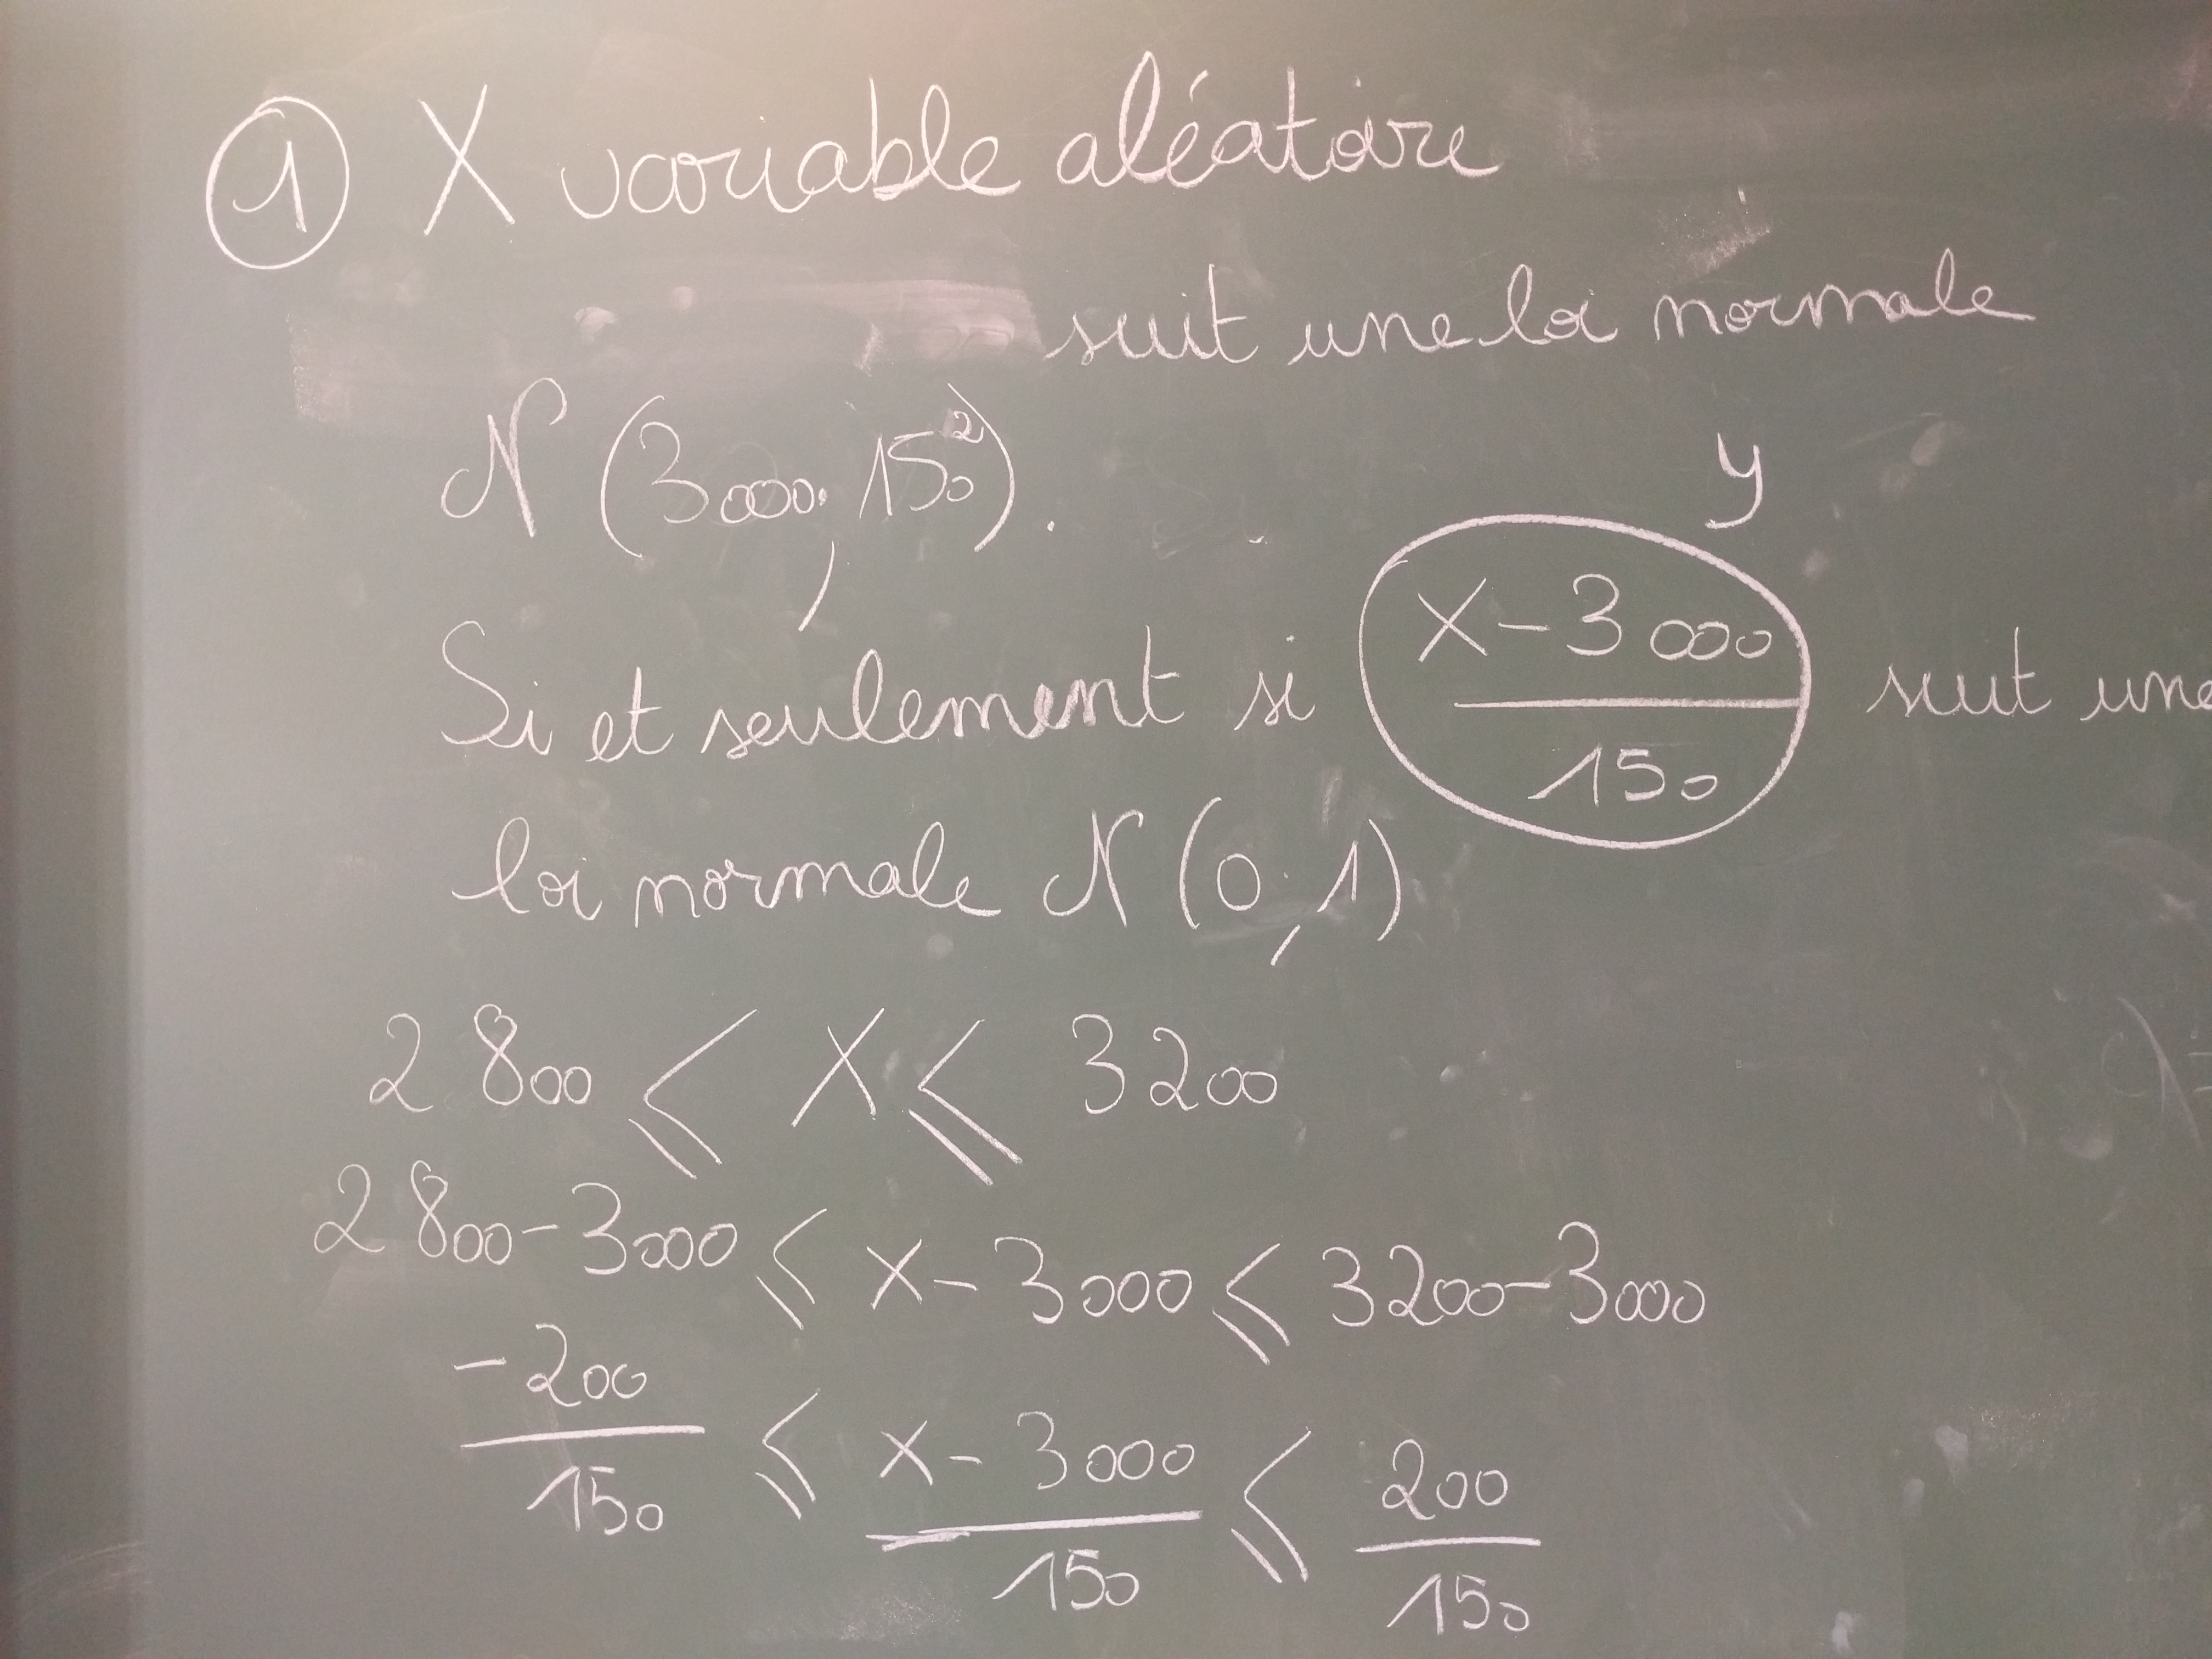 ① X variable aléatoire
suit une loi normale
N (3000, 150²).
y
Si et seulement si (X-3000)/150 suit une
loi normale N (0, 1)
2800 ≤ X ≤ 3200
2800-3000 ≤ X-3000 ≤ 3200-3000
-200/150 ≤ X-3000/150 ≤ 200/150